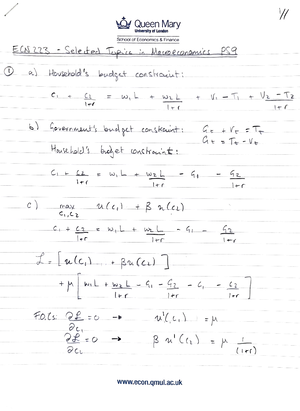 Queen Mary
University of London
School of Economics & Finance
1/
ECN223 - Selected Topics in Macroeconomics PS9
① a) Household's budget constraint:
c₁ + c₂/(1+r) = w₁L + w₂L/(1+r) + V₁ - T₁ + (V₂ - T₂)/(1+r)
b) Government's budget constraint: Gₜ + Vₜ = Tₜ
Gₜ = Tₜ - Vₜ
Household's budget constraint:
c₁ + c₂/(1+r) = w₁L + w₂L/(1+r) - G₁ - G₂/(1+r)
c) max u(c₁) + β u(c₂)
c₁,c₂
c₁ + c₂/(1+r) = w₁L + w₂L/(1+r) - G₁ - G₂/(1+r)
ℒ = [u(c₁) + βu(c₂)]
+ μ [w₁L + w₂L/(1+r) - G₁ - G₂/(1+r) - c₁ - c₂/(1+r)]
FOCs: ∂ℒ/∂c₁ = 0 → u'(c₁) = μ
∂ℒ/∂c₂ = 0 → β u'(c₂) = μ 1/(1+r)
www.econ.qmul.ac.uk